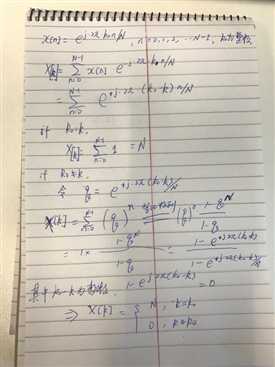 x[n] = e^{j·2π·k₀n/N}, n=0,1,2,…N-1, k₀为整数
X[k] = Σ_{n=0}^{N-1} x[n] e^{-j·2π·k·n/N}
= Σ_{n=0}^{N-1} e^{+j·2π·(k₀-k)·n/N}
if k₀=k,
X[k] = Σ_{n=0}^{N-1} 1 = N
if k₀≠k.
令 q = e^{+j·2π(k₀-k)/N}
X[k] = Σ_{n=0}^{N-1} (q)^n = (q)^0 · (1-q^N)/(1-q)
= 1× (1-q^N)/(1-q) = (1-e^{+j·2π(k₀-k)})/(1-e^{+j·2π(k₀-k)/N})
其中 k₀-k为整数. 1-e^{j2π(k₀-k)} = 0
⇒ X[k] = { N, k=k₀
0, k≠k₀